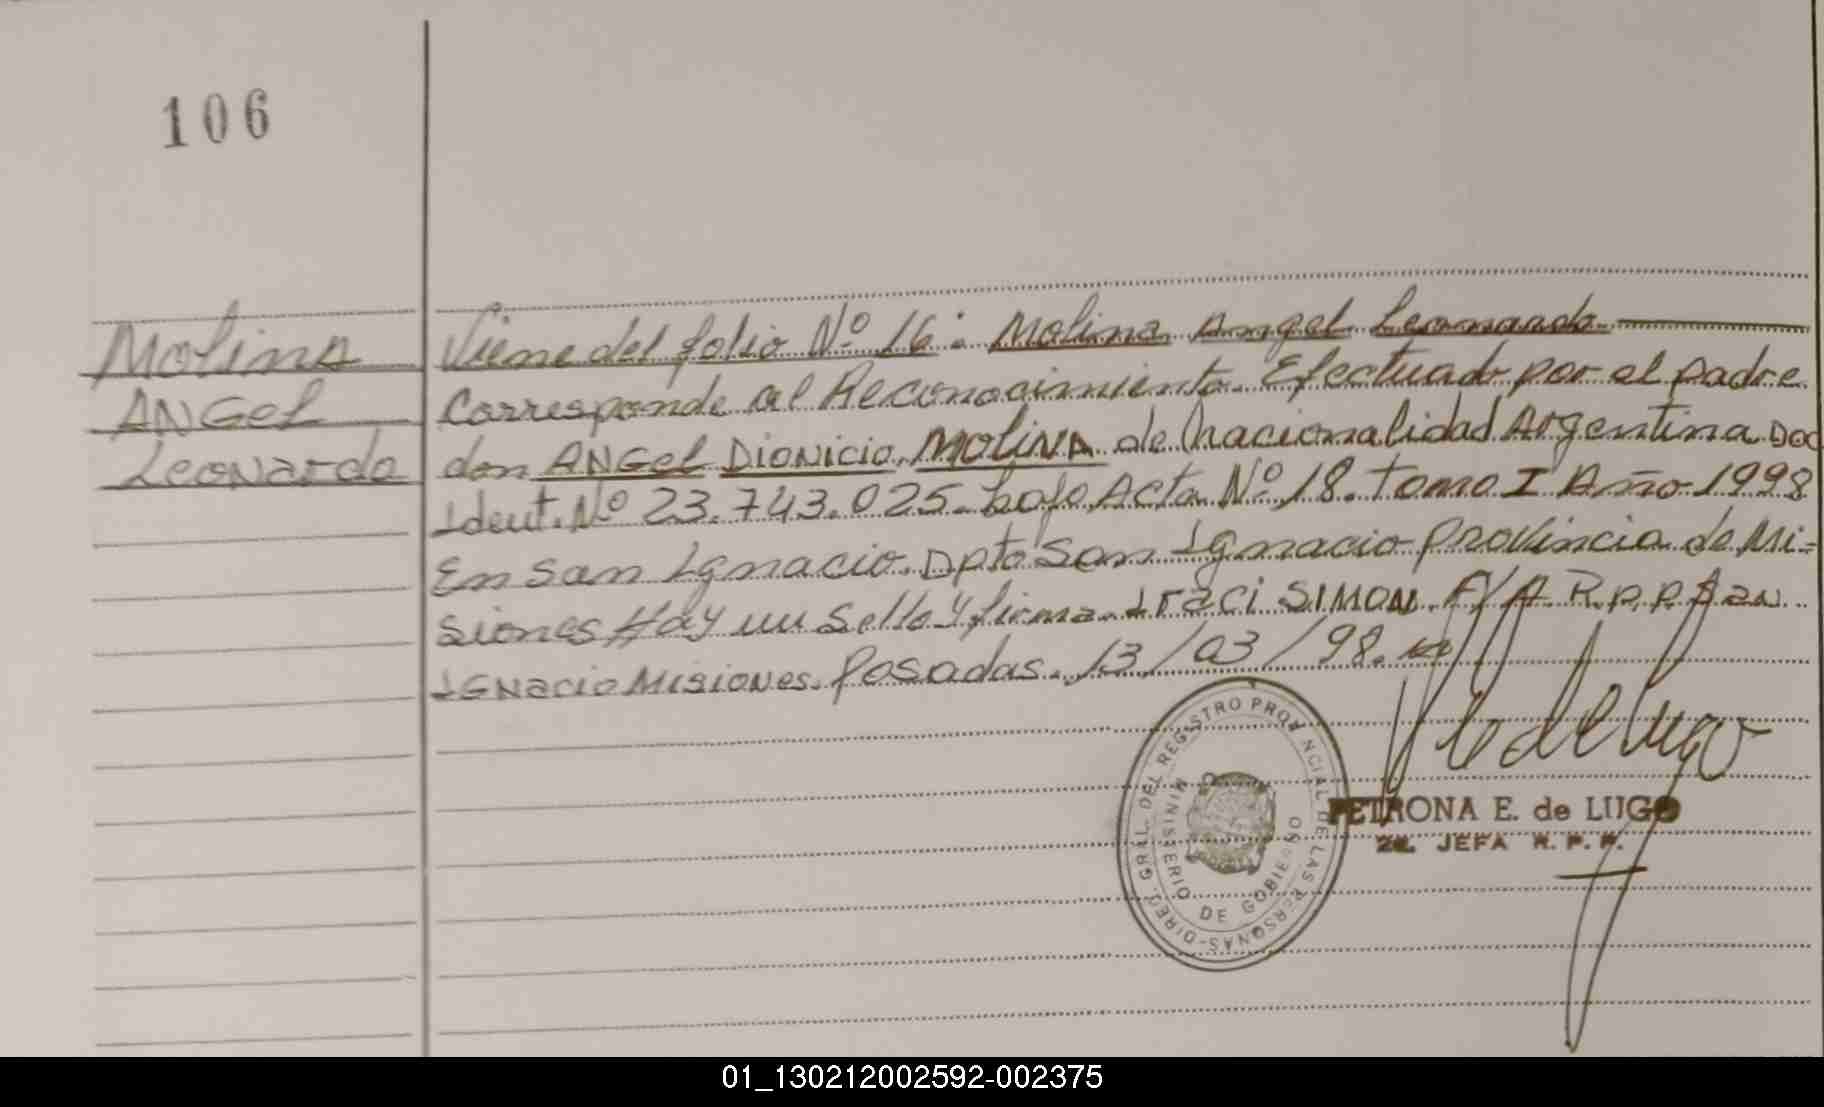 106
Molina
ANGEL
Leonardo
Viene del folio Nº 16: Molina Angel Leonardo
Corresponde al Reconocimiento. Efectuado por el padre
don ANGEL DIONICIO MOLINA de Nacionalidad Argentina Doc
Ident. Nº 23.743.025. bajo Acta Nº 18. Tomo I Año 1998
En San Ignacio. Dpto San Ignacio Provincia de Mi=
siones Hay un Sello y firma. Iraci SIMON F/A R.P.P. San
IGNacio Misiones. Posadas. 13/03/98.
DIREC. GRAL. DEL REGISTRO PROVINCIAL DE LAS PERSONAS
MINISTERIO DE GOBIERNO
PETRONA E. de LUGO
2a. JEFA R. P. P.
01_130212002592-002375